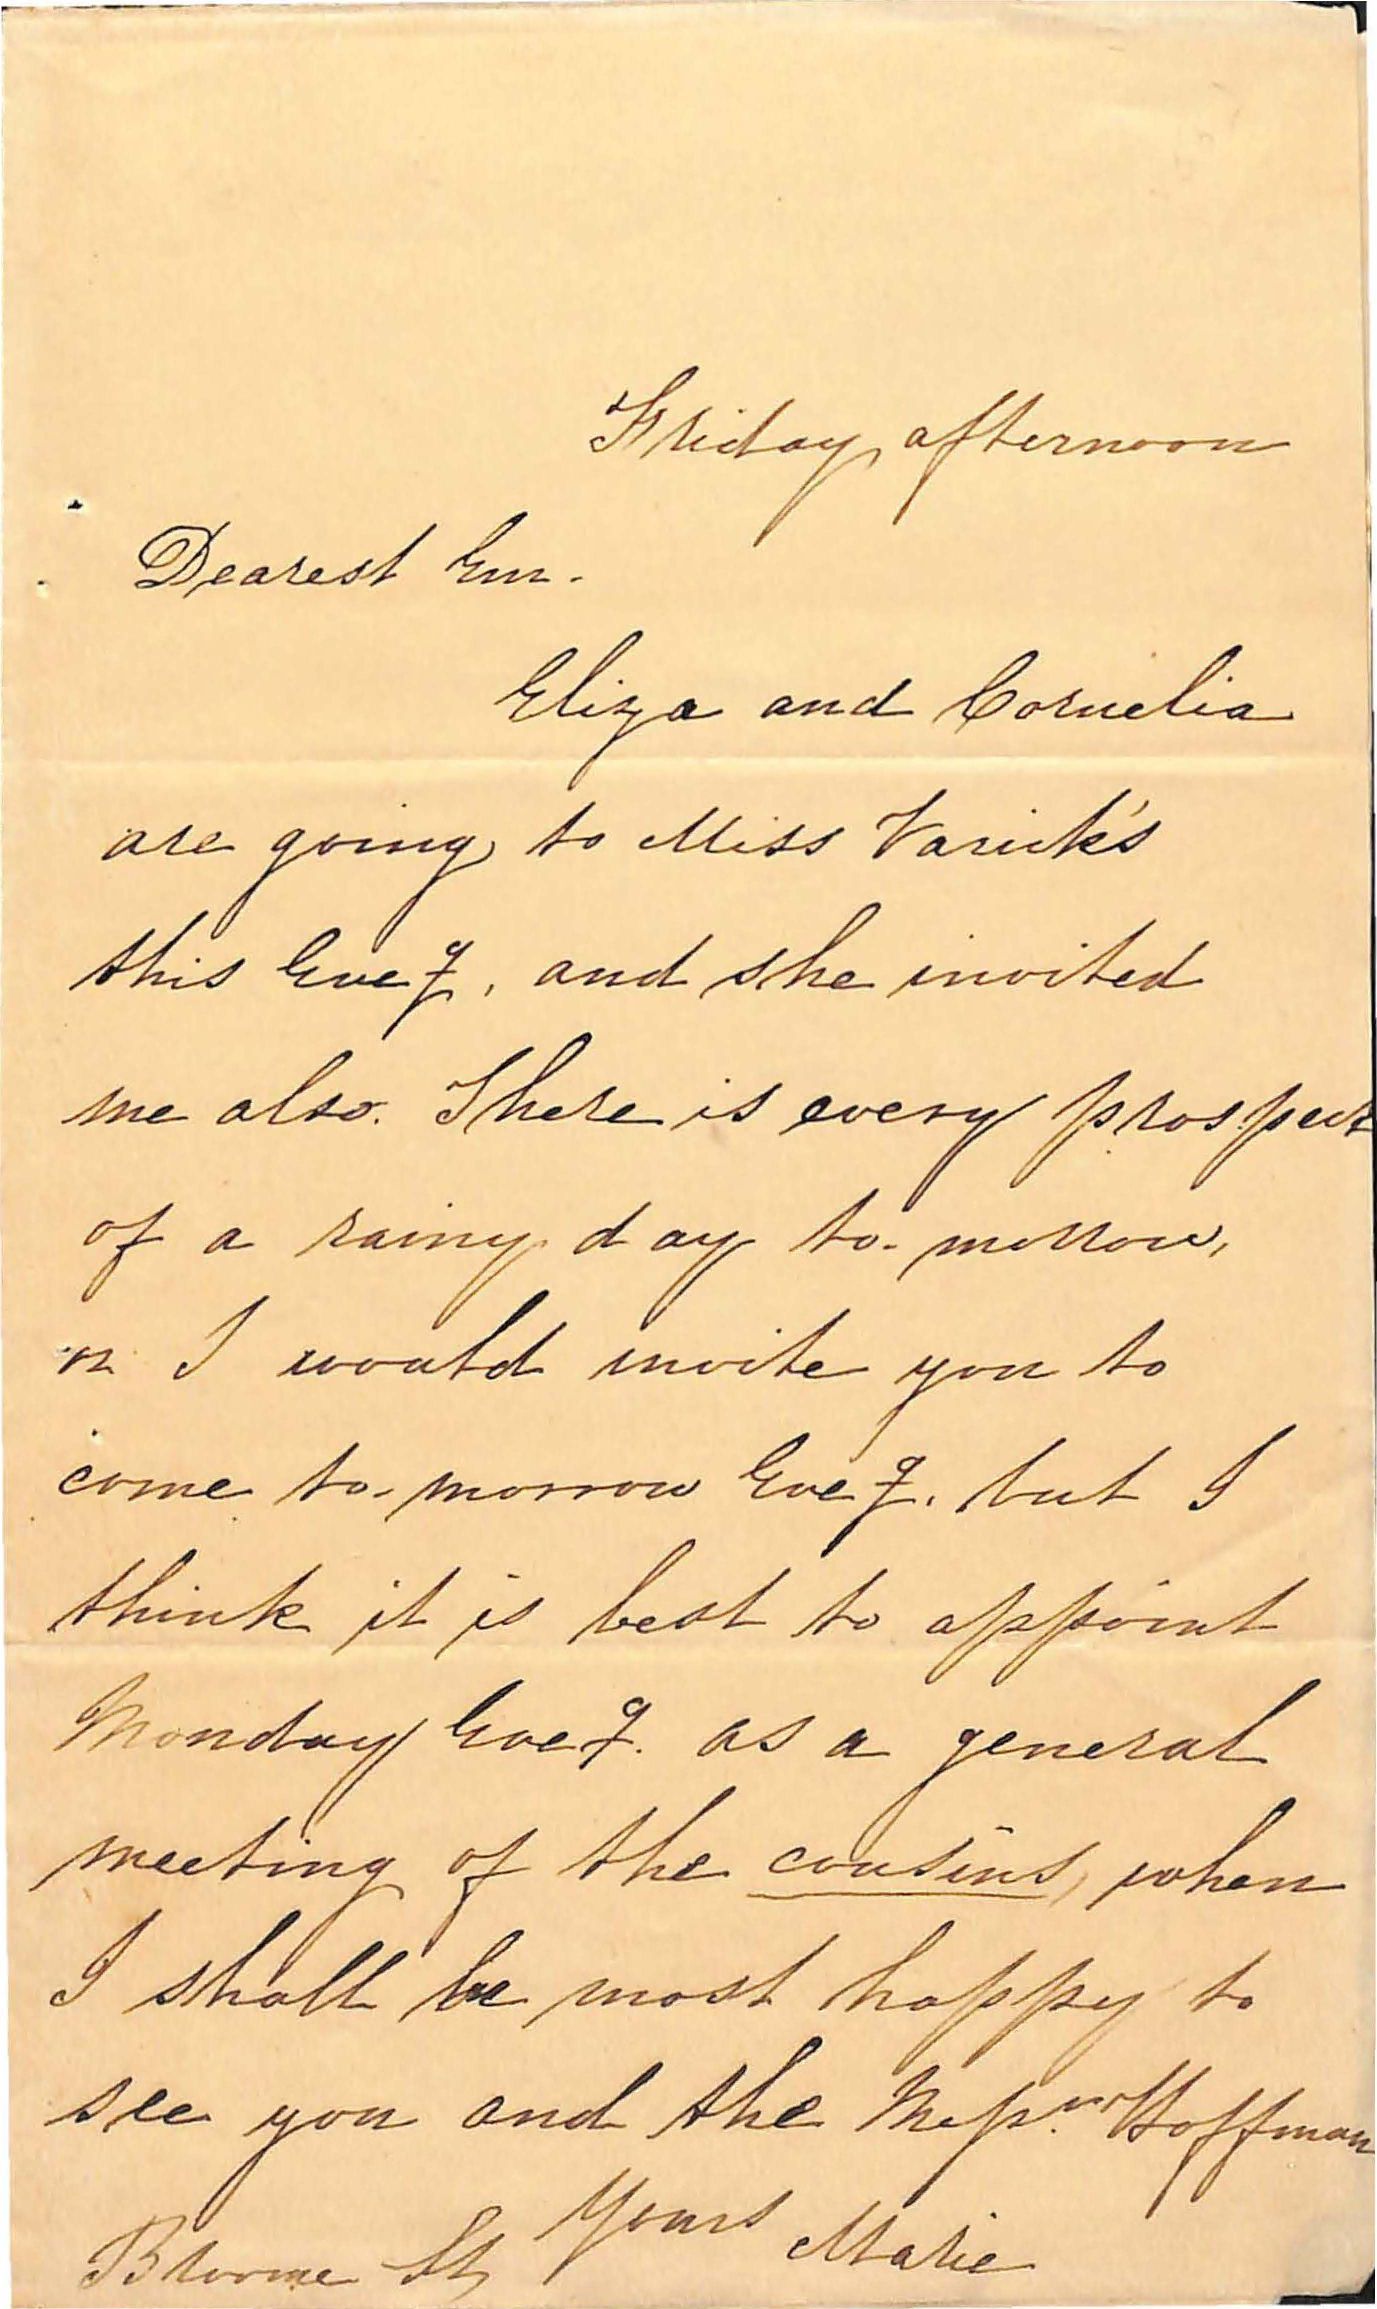 Friday afternoon
Dearest Em.
Eliza and Cornelia
are going to Miss Varick's
this Eve^g, and she invited
me also. There is every prospect
of a rainy day to-morrow,
or I would invite you to
come to-morrow Eve^g. but I
think it is best to appoint
Monday Eve^g. as a general
meeting of the cousins, when
I shall be most happy to
see you and the Mess^rs. Hoffman
Yours Marie
Broome St,